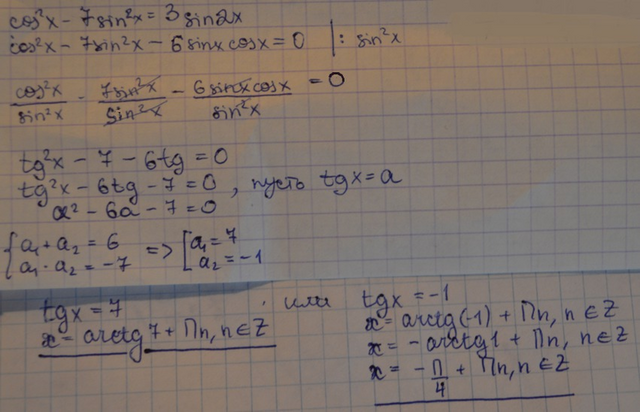 cos²x - 7sin²x = 3sin2x
cos²x - 7sin²x - 6sinx cosx = 0 | : sin²x
cos²x/sin²x - 7sin²x/sin²x - 6sinx cosx/sin²x = 0
tg²x - 7 - 6tg = 0
tg²x - 6tg - 7 = 0, пусть tgx = a
a² - 6a - 7 = 0
{a₁ + a₂ = 6 => [a₁ = 7
{a₁ · a₂ = -7 [a₂ = -1
tgx = 7 или tgx = -1
x = arctg7 + Пn, n ∈ Z
x = arctg(-1) + Пn, n ∈ Z
x = -arctg1 + Пn, n ∈ Z
x = -П/4 + Пn, n ∈ Z